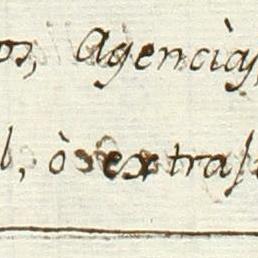 os, Agencias,
l, ò extraj